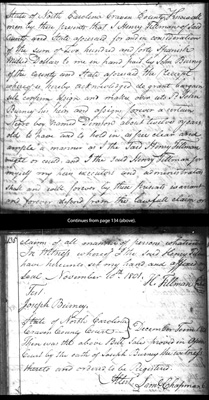 State of North Carolina Craven County Know all
men by these presents that I Henry Tillman of said
County and State aforesaid for and in consideration
of the sum of two hundred and forty Spanish
Milled Dollars to me in hand paid by John Burney
of the County and State aforesaid the Receipt
whereof is hereby acknowledged do grant bargain
sell confirm assign and make over unto John
Burney his heirs and assigns forever a certain
negro boy named about twelve years
old to have and to hold in as free clear and
ample a manner as I the said Henry Tillman
might or could and I the said Henry Tillman for
myself my heirs executors and administrators
shall and will forever by these presents warrant
and forever defend from the lawful claim or
Continues from page 134 (above).
135
claim of all manner of persons whatever
In Witness whereof I the said
have hereunto set my hand and affixed
seal November 10th 1801.
H. Tillman
Test
Joseph Burney.
State of North Carolina
Craven County Court December Term
Then was the above Bill Sale proved in Open
Court by the oath of Joseph Burney the
thereto and ordered to be Registered.
Attest Saml Chapman